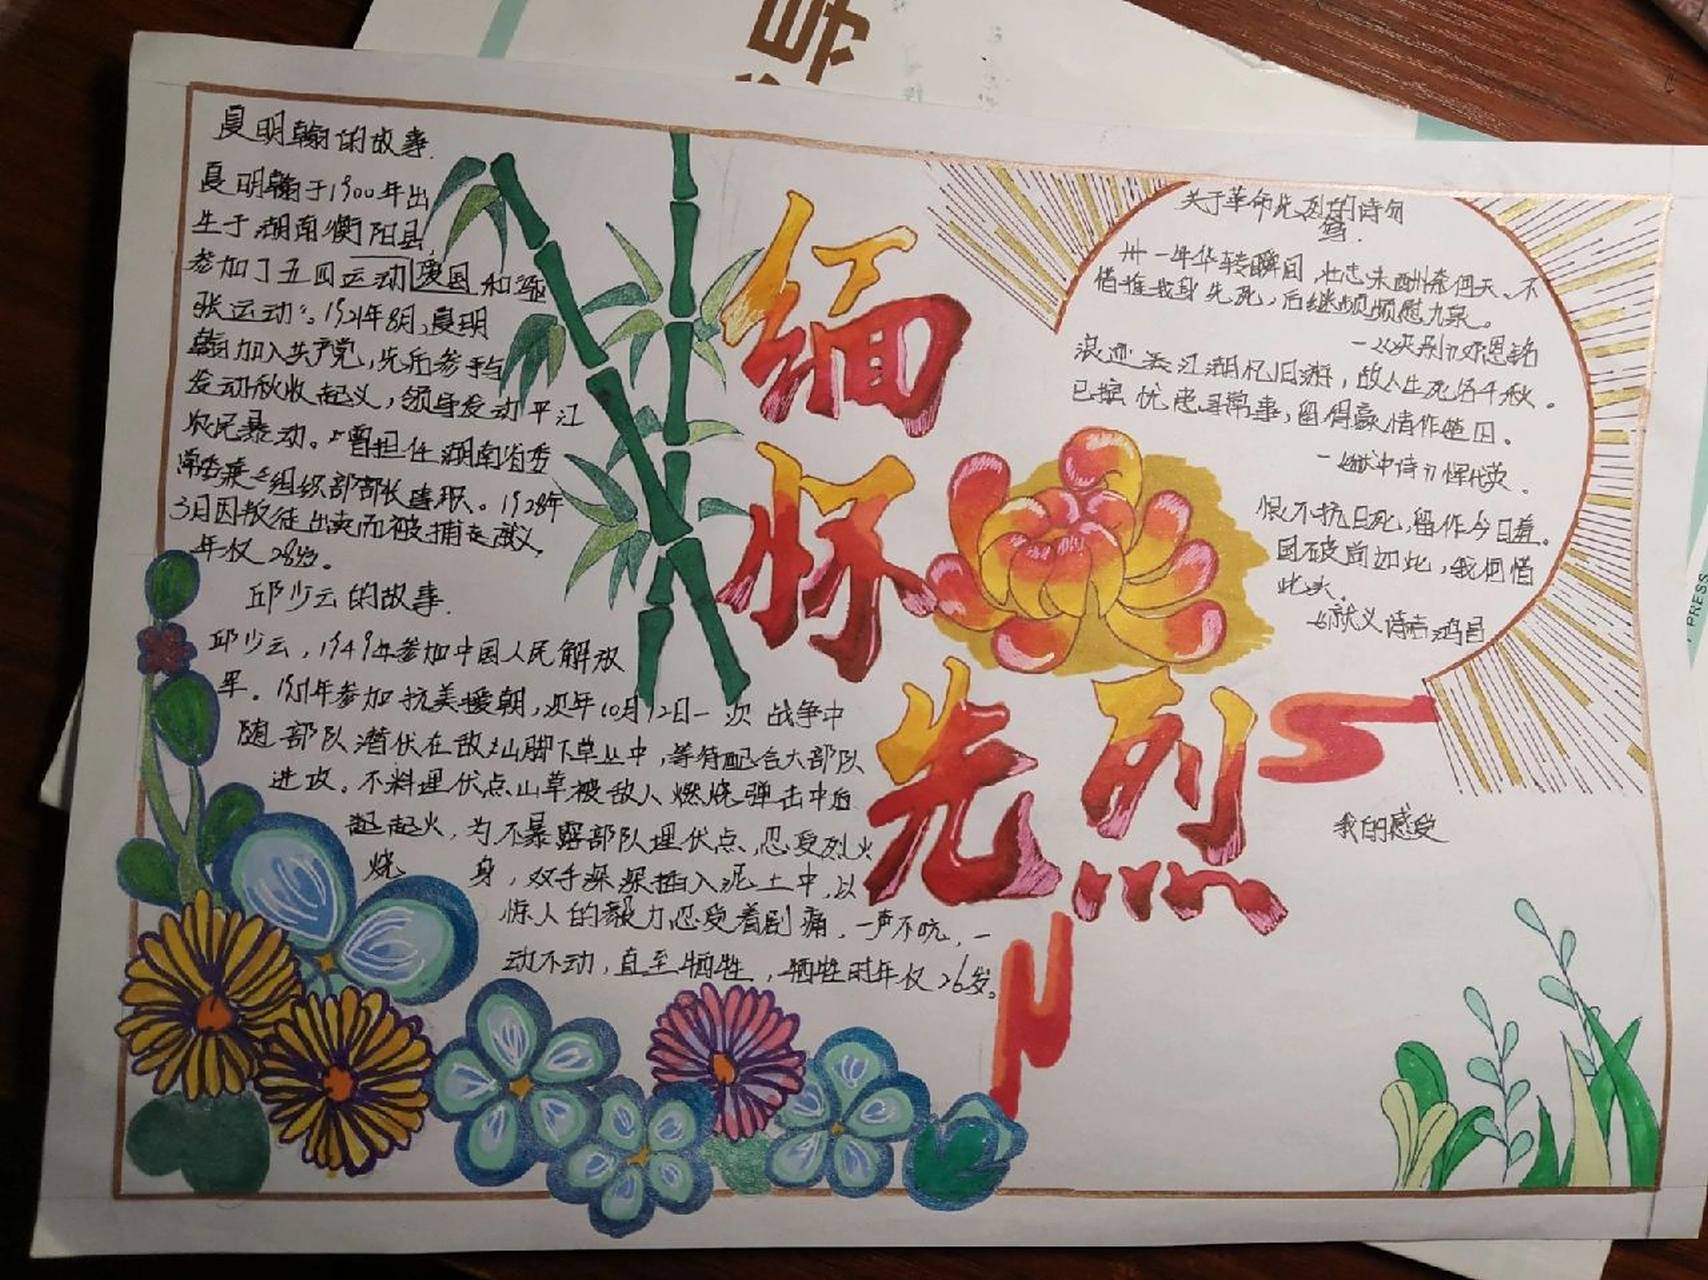 夏明翰的故事.
夏明翰于1900年出
生于湖南衡阳县
参加了五四运动爱国和
张运动"。1921年8月,夏明
翰加入共产党,先后参与
发动秋收起义,领导发动平江
农民暴动。曾担任湖南省委
常委兼组织部部长等职。1928年
3月因叛徒出卖而被捕走就义,
年仅28岁。
邱少云的故事.
邱少云,1949年参加中国人民解放
军。1951年参加抗美援朝,次年10月12日一次战争中
随部队潜伏在敌山脚下草丛中,等待配合大部队
进攻。不料埋伏点山草被敌人燃烧弹击中后
起起火,为不暴露部队埋伏点,忍受烈火
烧身,双手深深插入泥土中,以
惊人的毅力忍受着剧痛,一声不吭,一
动不动,直至牺牲,牺牲时年仅26岁。
缅
怀
先烈
关于革命先烈的诗句
卅一年华转瞬间,壮志未酬奈何天。不
惜惟我身先死,后继频频慰九泉。
—《诀别》邓恩铭
浪迹江湖忆旧游,故人生死各千秋。
已摈忧患寻常事,留得豪情作楚囚。
—《狱中诗》恽代英.
恨不抗日死,留作今日羞。
国破尚如此,我何惜
此头。
—《就义诗》吉鸿昌
我的感受
PRESS